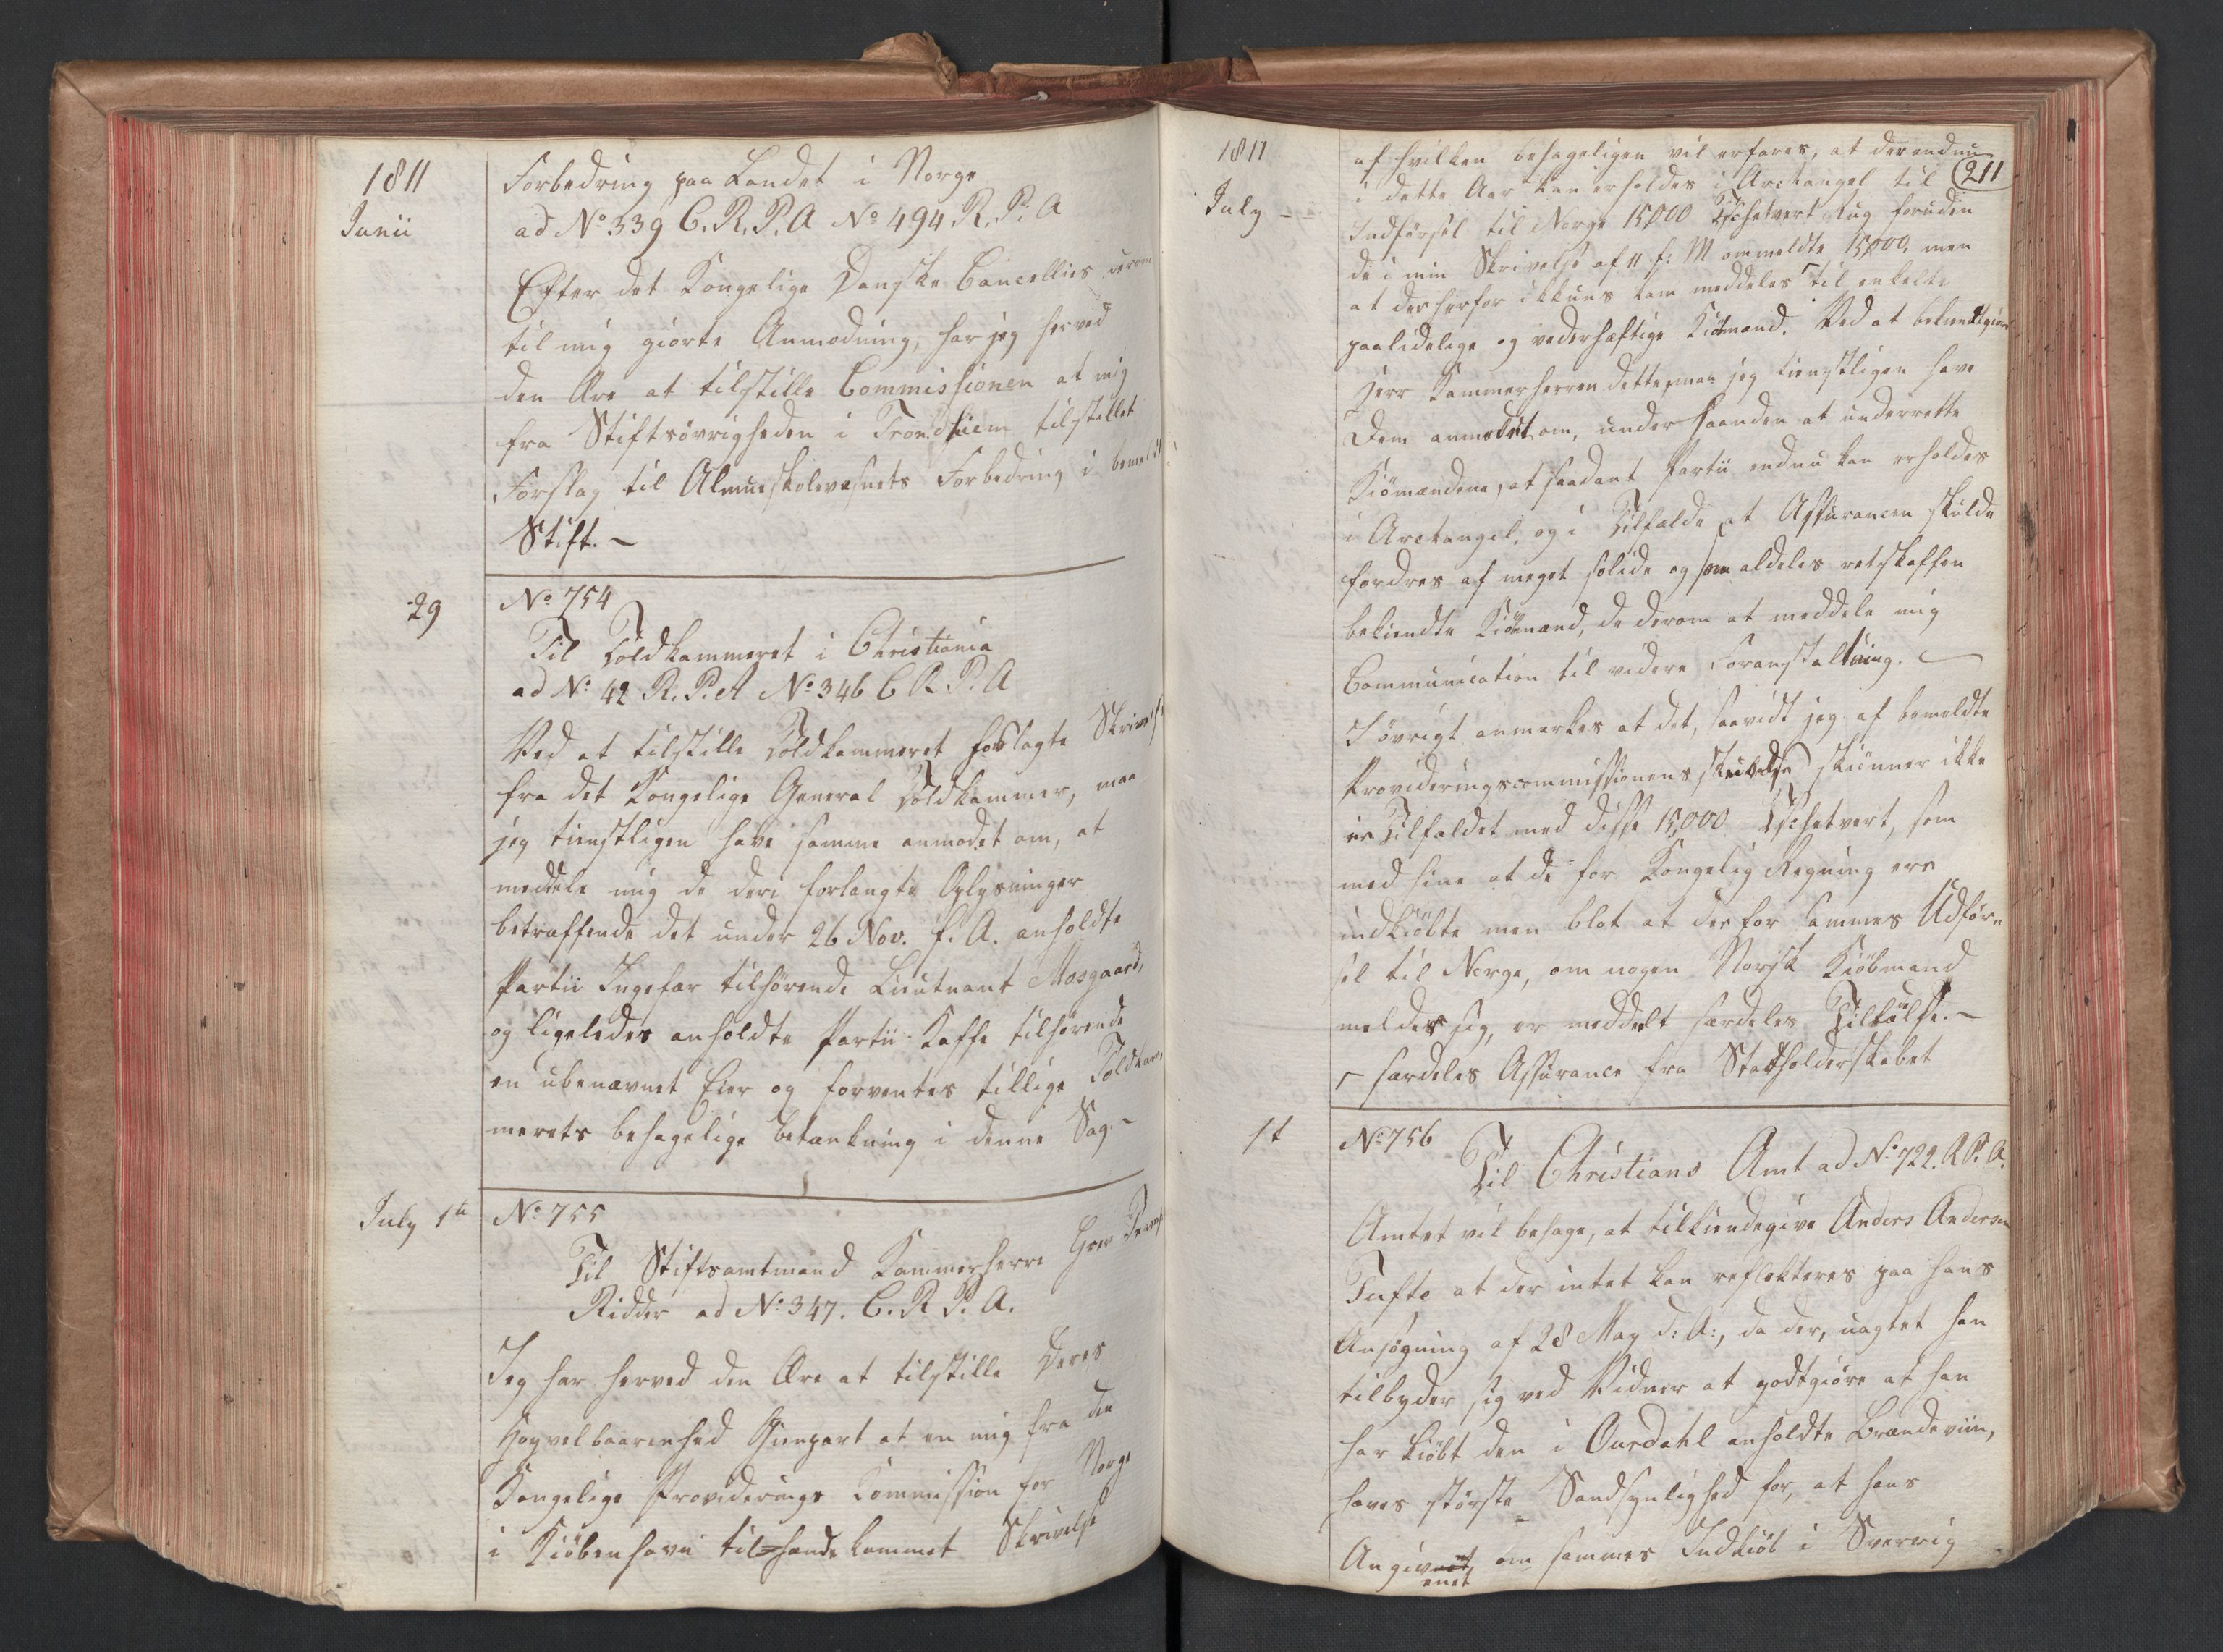 1811
Junii
Forbedring paa Landet i Norge
ad No 339 C. R. P. A No 494 R. P. A
Efter det Kongelige Danske Cancellies derom
til mig giorte Anmodning, har jeg herved
den Ære at tilstille Commissionen at mig
fra Stiftsøvrigheden i Trondhiem tilstillet
Forslag til Almueskolevæsnets Forbedring i bemeldte
Stift. ~
29
No 754
Til Toldkammeret i Christiania
ad No 42 R. P. A No 346 C R. P. A
Ved at tilstille Toldkammeret hoslagte Skrivelse
fra det Kongelige General Toldkammer, maa
jeg tienstligen have samme anmodet om, at
meddele mig de deri forlangte Oplysninger
betræffende det under 26 Nov. f. A. anholdte
Partii Ingefær tilhørende Lieutnant Mosgaard,
og ligeledes anholdte Partii Kaffe tilhørende
en ubenævnet Eier og forventes tillige Toldkam
merets behagelige Betænkning i denne Sag. ~
July 1te
No 755
Til Stiftsamtmand Kammerherre Grev
Ridder ad No 347. C. R P. A.
Jeg har herved den Ære at tilstille Deres
Høyvelbaarenhed Gienpart at en mig fra den
Kongelige Providerings Commission for Norge
i Kiøbenhavn tilhændekommet Skrivelse
1811
July -
211
af hvilken behageligen vil erfares, at der endnu
i dette Aar kan erholdes i Archangel til
Indførsel til Norge 15,000 Tschetvert Rug foruden
de i min Skrivelse af 11 f: M ommeldte 15,000, men
at der herfor ikkuns kan meddeles ┌ til enkelte
paalidelige og vederhæftige Kiømænd. Ved at bekiendtgiøre
Herr Kammerherren dette, maa jeg tienstligen have
Dem anmodet om, under Haanden at underrette
Kiømændene, at saadant Partii endnu kan erholdes
i Archangel, og i Tilfælde at Assurancen skulde
fordres af meget solide og som aldeles retskaffen
bekiendte Kiømænd, da derom at meddele mig
Communication til videre Foranstaltning. ~
I øvrigt anmærkes at det, saavidt jeg af bemeldte
Provideringscommissionens Skrivelse skiønner ikke
er Tilfældet med disse 15,000 Tschetvert, som
med hine at de for Kongelig Regning ere
indkiøbte men blot at der for sammes Udfør-
sel til Norge, om nogen Norsk Kiøbmand
melder sig, er meddelt særdeles Tilladelse. ~
┌ særdeles Assurance fra Statholderskabet
1t
No 756
Til Christians Amt ad No 722. R P. A.
Amtet vil behage, at tilkiendegive Anders Andersen
Tufte at der intet kan reflekteres paa hans
Ansøgning af 28 May d: A:, da der, uagtet han
tilbyder sig ved Vidner at godtgiøre at han
har kiøbt den i Ourdahl anholdte Brændeviin,
haves største Sandsynlighed for, at hans
Angivenet om sammes Indkiøb i Sverrig
enet